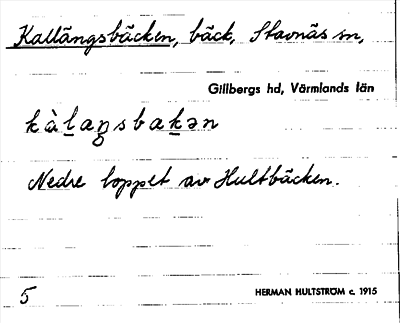 Kallängsbäcken, bäck, Stavnäs sn,
Gillbergs hd, Värmlands län
Nedre loppet av Hultbäcken.
5
HERMAN HULTSTRÖM c. 1915